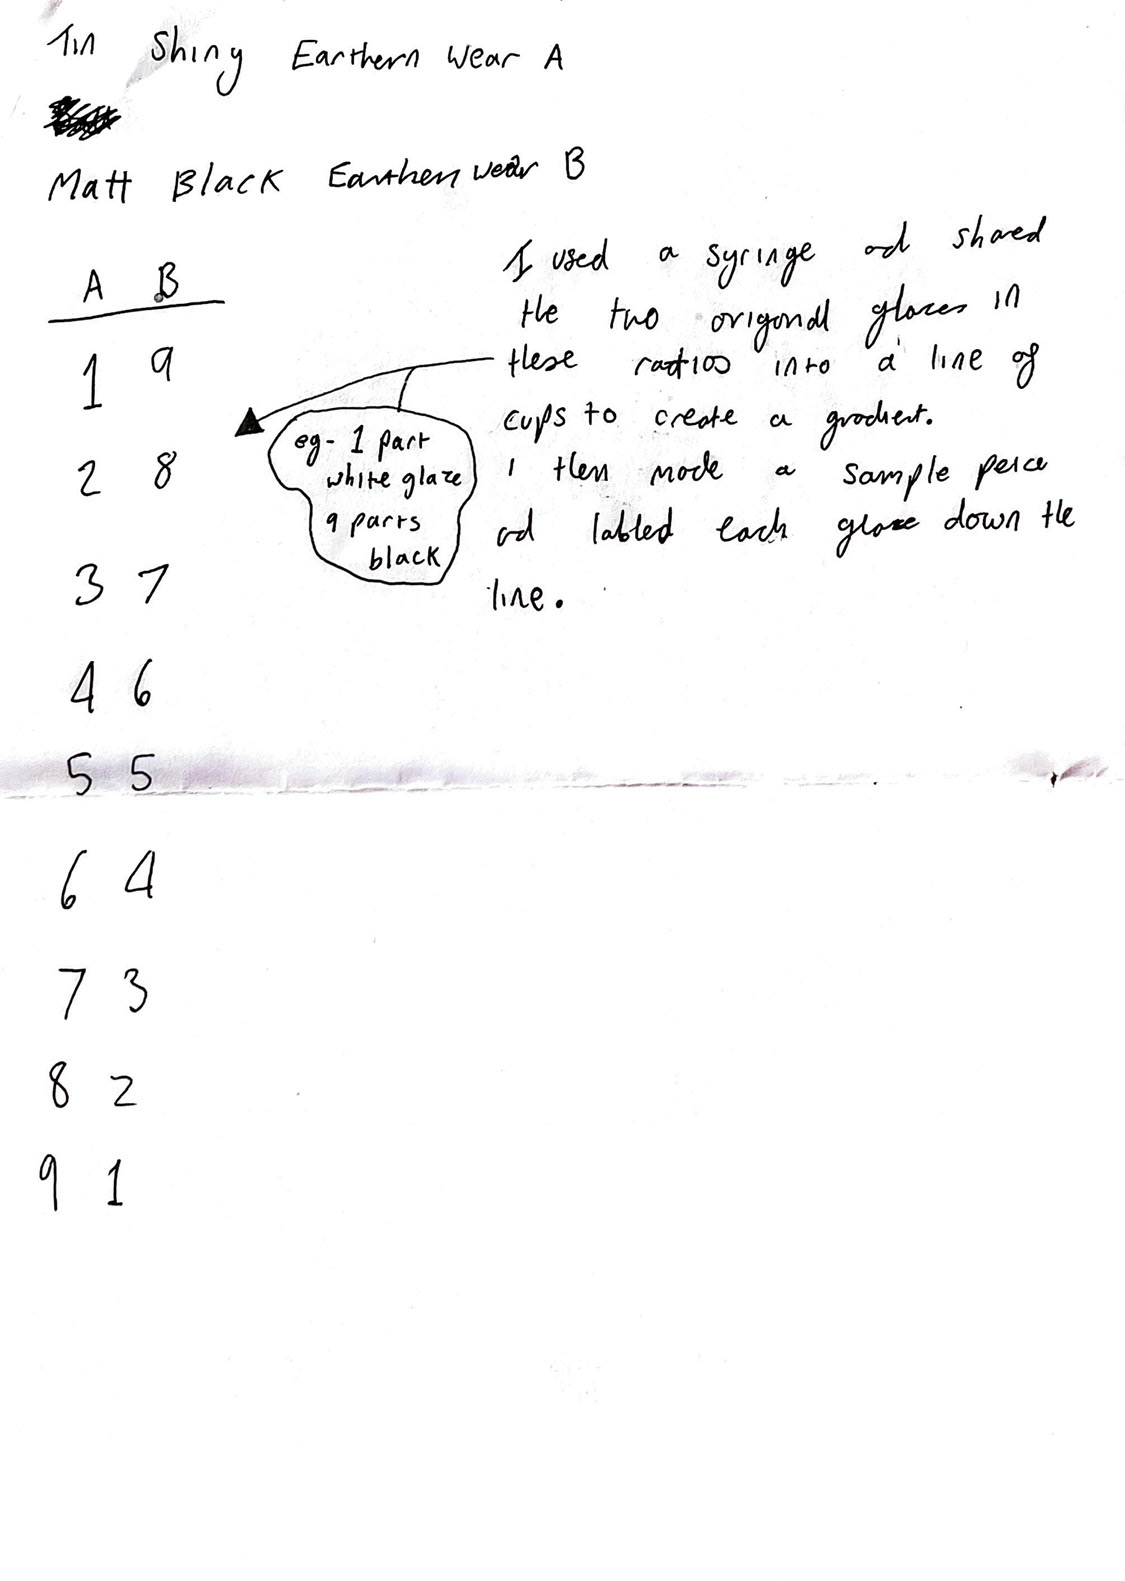 Tin Shiny Earthern Wear A
Matt Black Earthenwear B
A B
1 9
2 8
3 7
4 6
5 5
6 4
7 3
8 2
9 1
I used a syringe ad shared
the two origonal glazes in
these ratios into a line of
cups to create a gradient.
I then made a sample peice
ad labled each glaze down the
line.
eg- 1 part
white glaze
9 parts
black